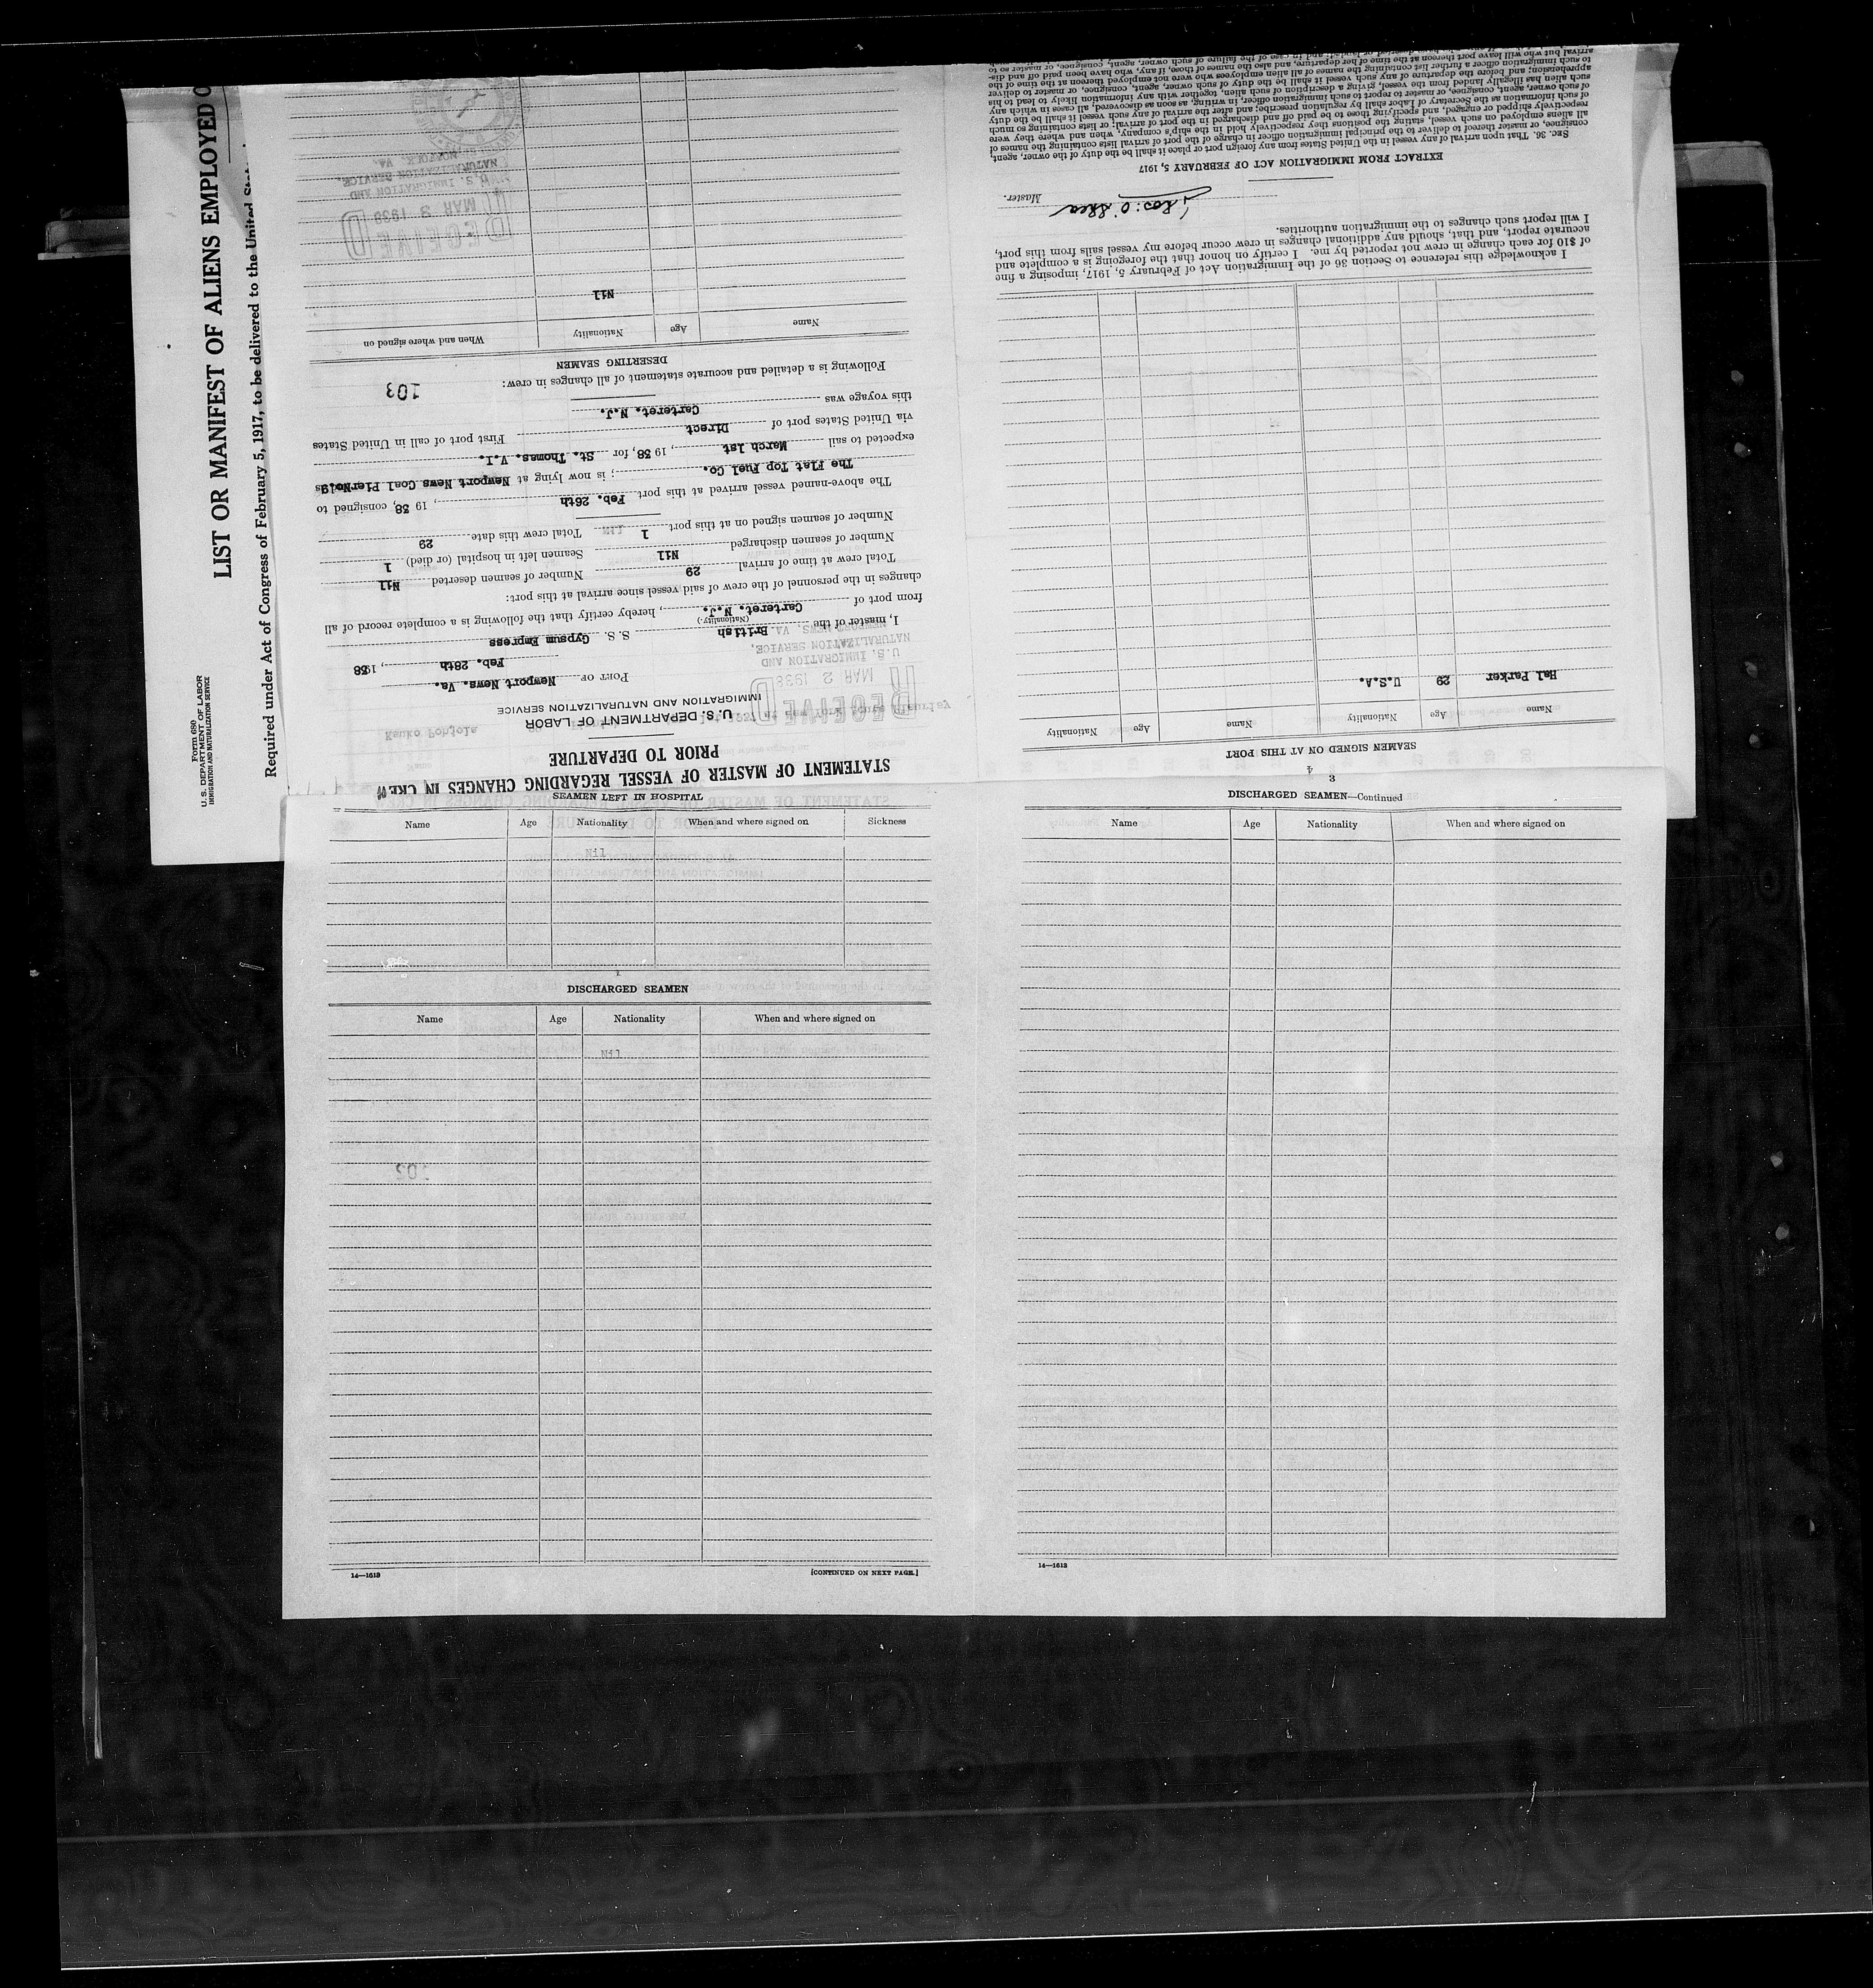 Form 680
U. S. DEPARTMENT OF LABOR
IMMIGRATION AND NATURALIZATION SERVICE
LIST OR MANIFEST OF ALIENS EMPLOYED O
Required under Act of Congress of February 5, 1917, to be delivered to the United
STATEMENT OF MASTER OF VESSEL REGARDING CHANGES IN CREW
PRIOR TO DEPARTURE
U. S. DEPARTMENT OF LABOR
IMMIGRATION AND NATURALIZATION SERVICE
RECEIVED
MAR 2 1938
U. S. IMMIGRATION AND
NATURALIZATION SERVICE,
NEWPORT NEWS, VA.
PORT OF Newport News. Va.
Feb. 28th, 1938
I, master of the British S. S. Gypsum Empress
(Nationality)
from port of Carteret. N.J., hereby certify that the following is a complete record of all
changes in the personnel of the crew of said vessel since arrival at this port:
Total crew at time of arrival 29 Number of seamen deserted Nil
Number of seamen discharged Nil Seamen left in hospital (or died) 1
Number of seamen signed on at this port 1 Total crew this date 29
The above-named vessel arrived at this port Feb. 26th, 19 38, consigned to
The Flat Top Fuel Co. ; is now lying at Newport News Coal Pier No.9
expected to sail March 1st, 19 38, for St. Thomas. V.I.
via United States port of Direct First port of call in United States
this voyage was Carteret. N.J.
Following is a detailed and accurate statement of all changes in crew:
103
DESERTING SEAMEN
Name Age Nationality When and where signed on
Nil
RECEIVED
MAR 3 1938
U. S. IMMIGRATION AND
NATURALIZATION SERVICE,
NORFOLK, VA.
4
SEAMEN SIGNED ON AT THIS PORT
Name Age Nationality Name Age Nationality
Hal Parker 29 U.S.A.
I acknowledge this reference to Section 36 of the Immigration Act of February 5, 1917, imposing a fine
of $10 for each change in crew not reported by me. I certify on honor that the foregoing is a complete and
accurate report, and that, should any additional changes in crew occur before my vessel sails from this port,
I will report such changes to the immigration authorities.
Thos: O'Shea Master.
EXTRACT FROM IMMIGRATION ACT OF FEBRUARY 5, 1917
SEC. 36. That upon arrival of any vessel in the United States from any foreign port or place it shall be the duty of the owner, agent,
consignee, or master thereof to deliver to the principal immigration officer in charge of the port of arrival lists containing the names of
all aliens employed on such vessel, stating the positions they respectively hold in the ship's company, when and where they were
respectively shipped or engaged, and specifying those to be paid off and discharged in the port of arrival; or lists containing so much
of such information as the Secretary of Labor shall by regulation prescribe; and after the arrival of any such vessel it shall be the duty
of such owner, agent, consignee, or master to report to such immigration officer, in writing, as soon as discovered, all cases in which any
such alien has illegally landed from the vessel, giving a description of such alien, together with any information likely to lead to his
apprehension; and before the departure of any such vessel it shall be the duty of such owner, agent, consignee, or master to deliver
to such immigration officer a further list containing the names of all alien employees who were not employed thereon at the time of the
arrival but who will leave port thereon at the time of her departure, and also the names of those, if any, who have been paid off and dis-
SEAMEN LEFT IN HOSPITAL
Name Age Nationality When and where signed on Sickness
Nil
DISCHARGED SEAMEN
Name Age Nationality When and where signed on
Nil
14—1613 [CONTINUED ON NEXT PAGE.]
3
DISCHARGED SEAMEN—Continued
Name Age Nationality When and where signed on
14—1613